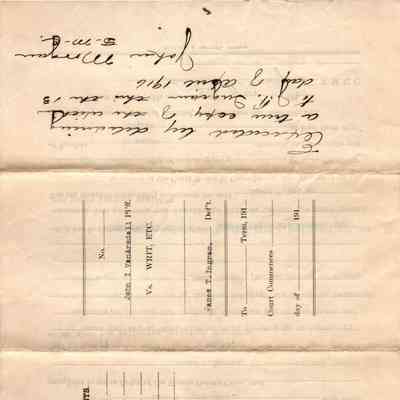 Executed by delivering
a true copy of the within
to J. T. Ingram this the 13
day of April 1916
John Morgan
S. M. C.
No.
John I Vanarsdall Pl'ff.
Vs. WRIT, ETC.
James T. Ingram, Def't.
To Term, 191
Court Commences
day of 191